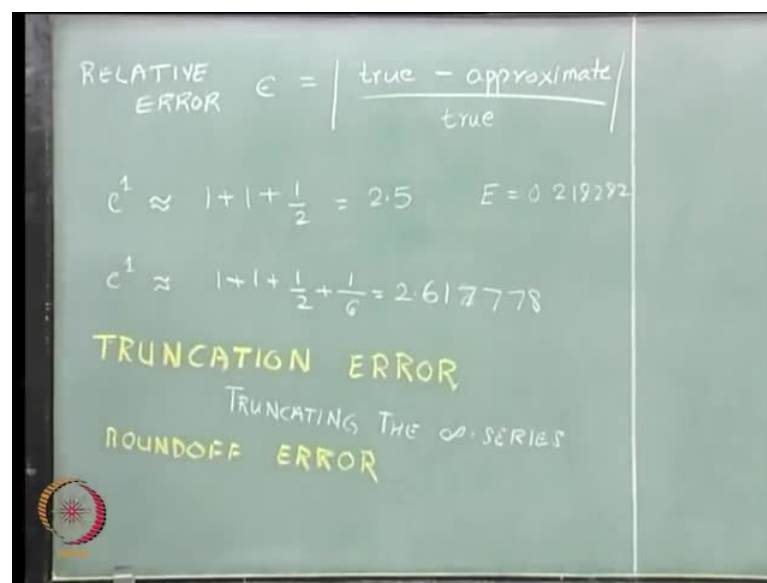 RELATIVE ERROR ϵ = | true - approximate / true |
e^1 ≈ 1 + 1 + 1/2 = 2.5 E = 0.218282
e^1 ≈ 1 + 1 + 1/2 + 1/6 = 2.617778
TRUNCATION ERROR
TRUNCATING THE ∞-SERIES
ROUNDOFF ERROR